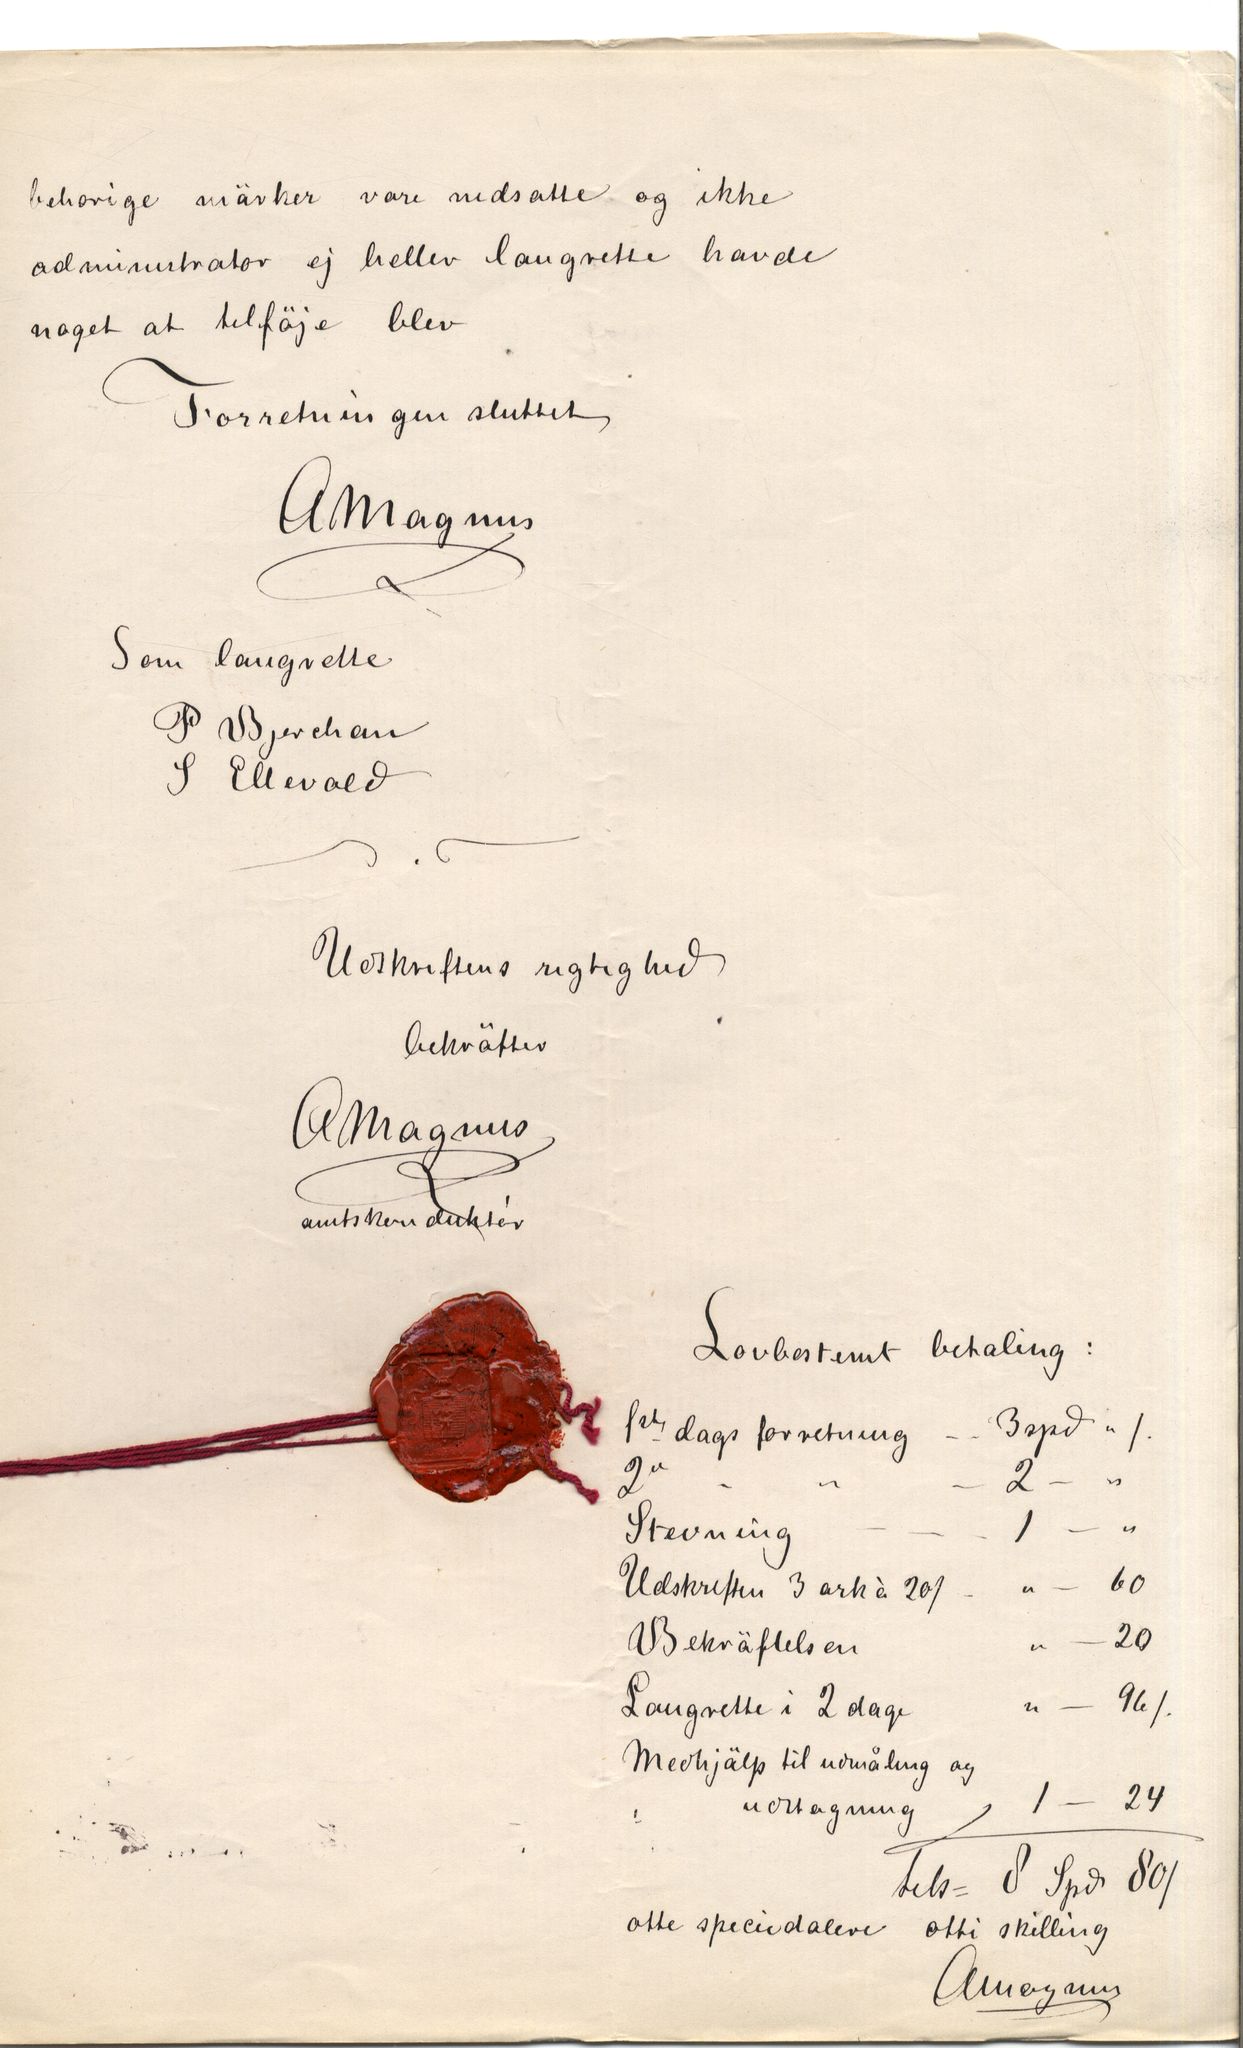 behørige märker vare nedsatte og ikke
administrator ej heller laugrette havde
noget at tilföje blev
Forretningen sluttet
AMagnus
Som laugrette
P Bjerchan
S Ellevold
Udskriftens rigtighed
bekräfter
AMagnus
amtskonduktör
Lovbestemt betaling:
1ste dags forretning - - 3 spd " /.
2n - " - 2 - "
Stevning - - - 1 - "
Udskriften 3 ark à 20/ - " - 60
Bekräftelsen " - 20
Laugrette i 2 dage " - 96/.
Medhjälp til udmåling og
udstagning 1 - 24
Tils= 8 Spd 80/
otte speciedalere otti skilling
AMagnus